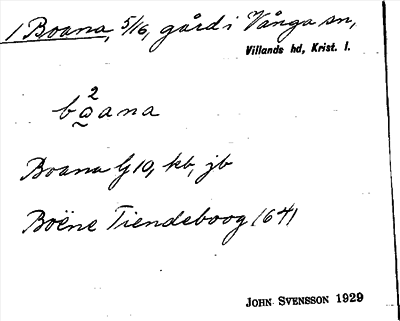 1 Boana, 5/16, gård i Vånga sn,
Villands hd, Krist. l.
2
båana
Boana G10, kb, jb
Boëne Tiendeboog 1641
JOHN SVENSSON 1929